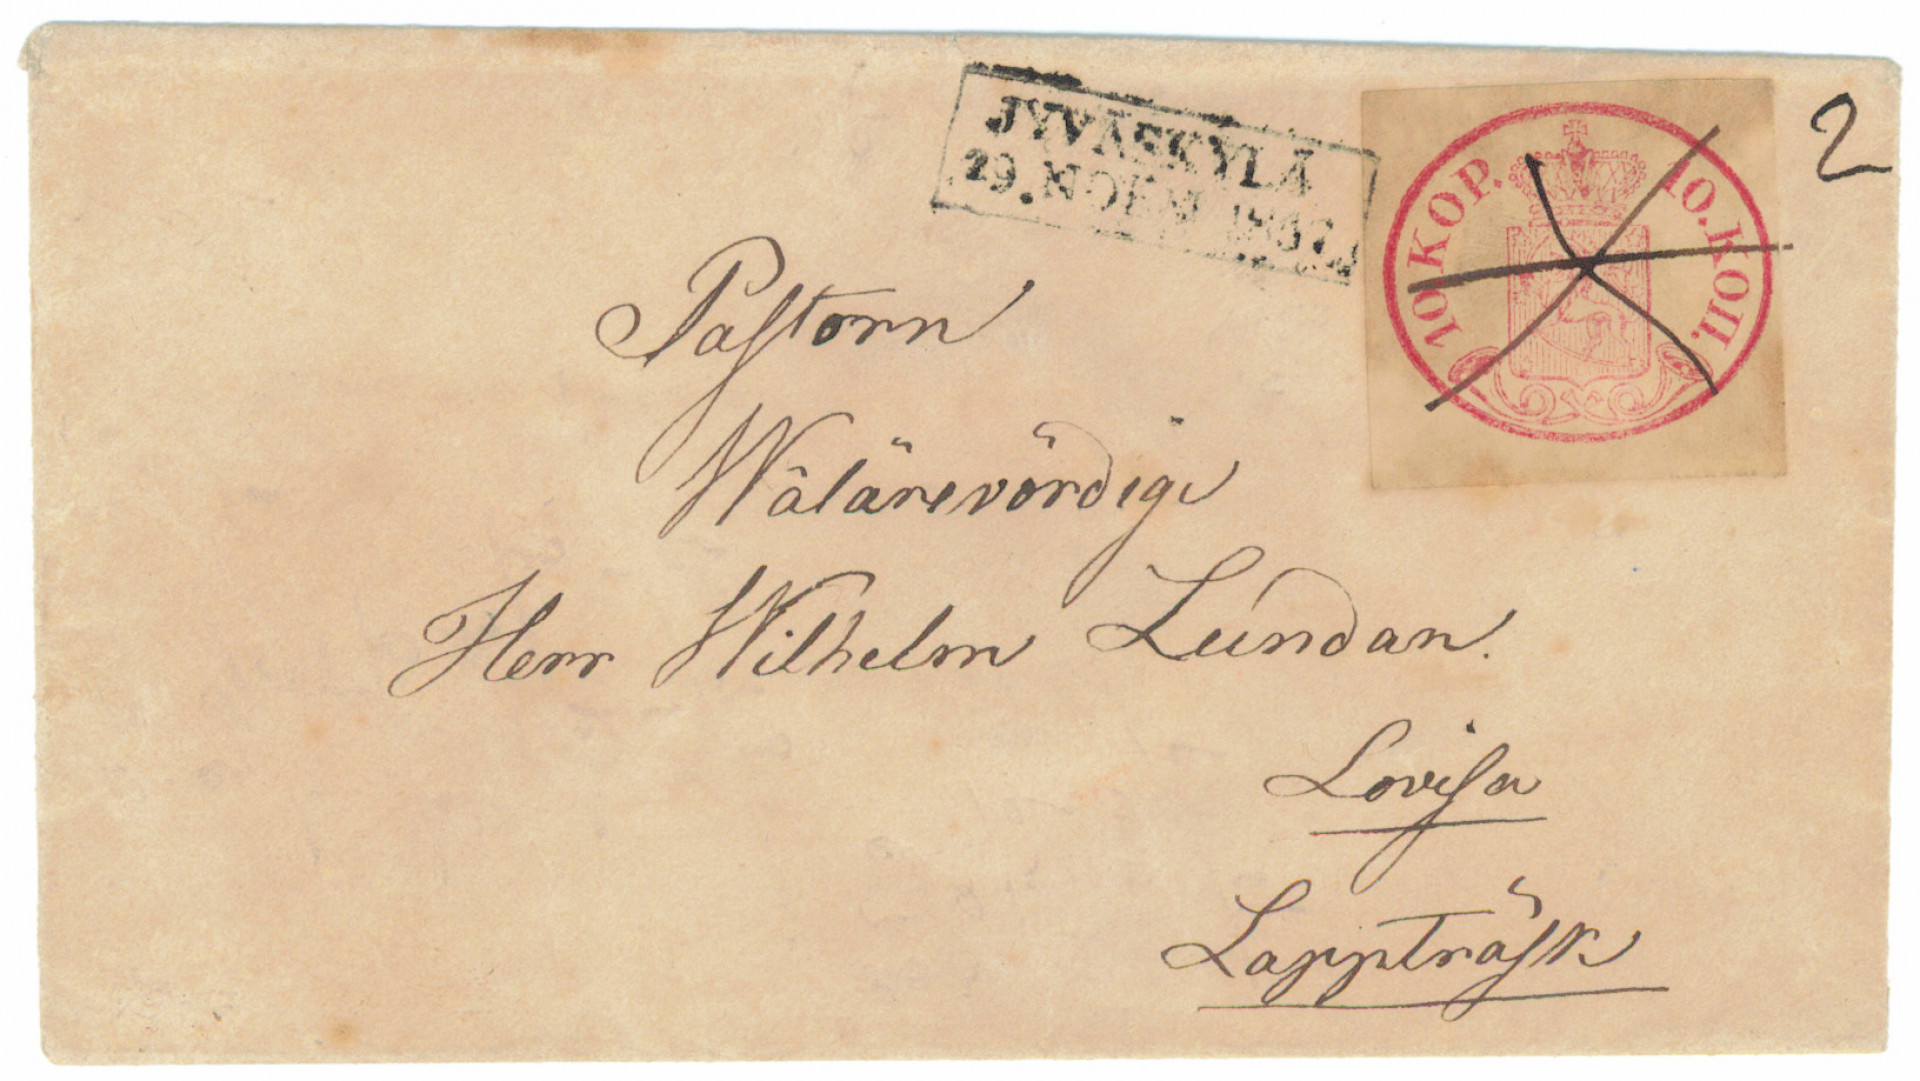 JYVÄSKYLÄ
29. NOVEM. 1857.
10 KOP. 10. КОП.
2
Pastorn
Wälärevördige
Herr Wilhelm Lundan.
Lovisa
Lappträsk